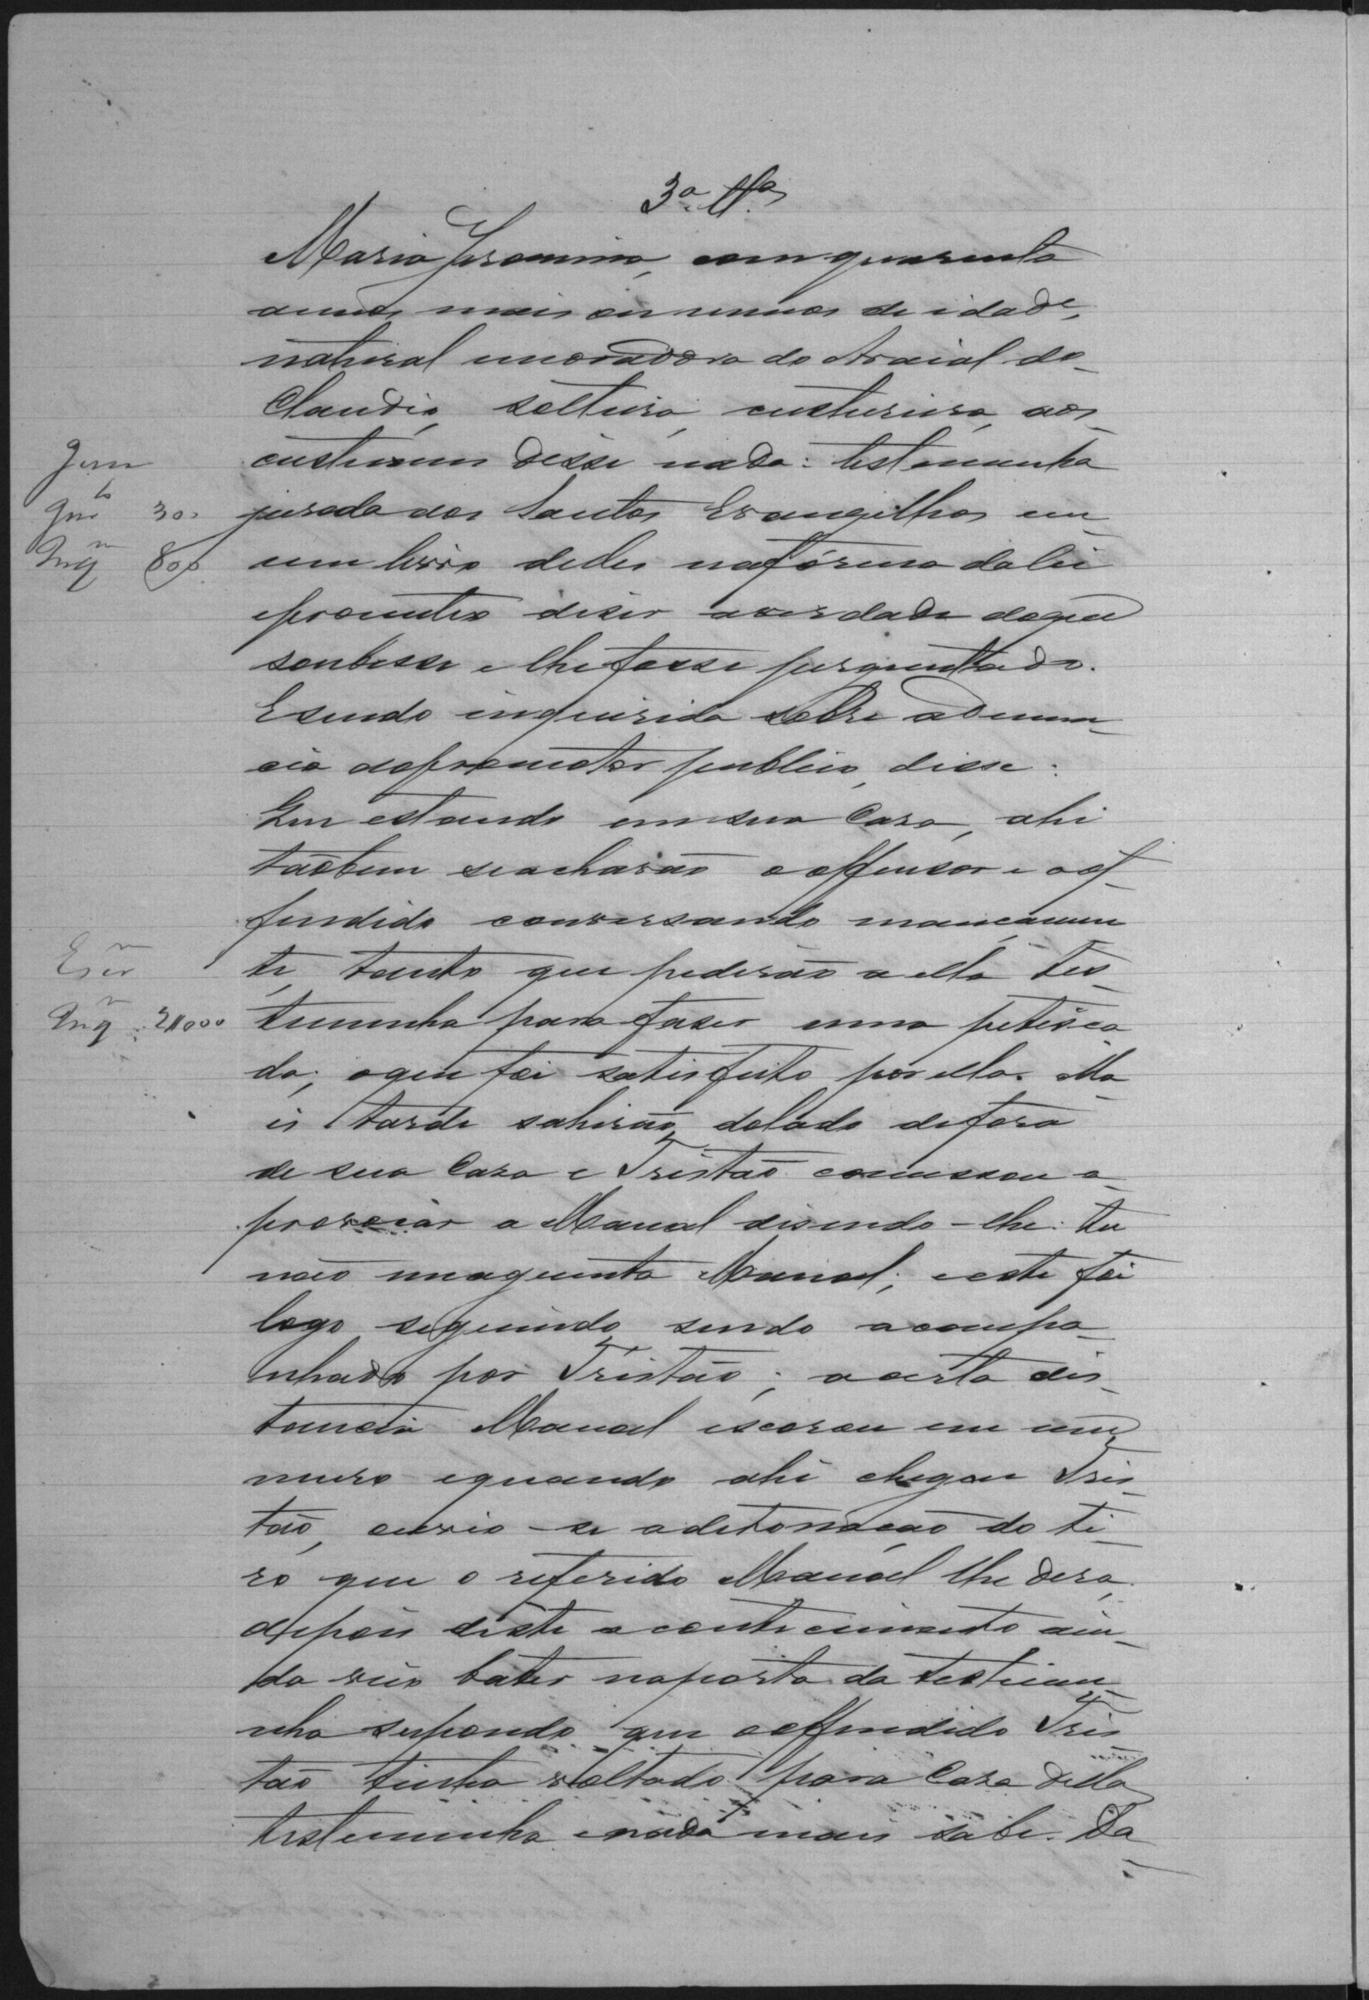 3ª Tª
Maria Jeronima, com quarenta
annos mais ou menos de idade,
natural e moradora do Araial do
Claudio, solteira, custureira, aos
custumes disse nada: testemunha
jurada aos Santos Evangelhos em
um livro delles na fórma da lei
e prometeo diser a verdade do que
soubesse e lhe fosse perguntado.
E sendo inquirida sobre a denun-
cia do promotor publico, disse:
Que estando em sua Casa, ahi
taõbem se acharão o offensor e o of-
fendido conversando mançamen
te, tanto que pedirão a ella tes-
temunha para faser uma petisca
da; o que foi satisfeito por ella. Ma
is tarde sahirão do lado de fora
de sua Casa e Tristão comessou a
provocar a Manoel disendo-lhe: tu
não me aguenta Manoel; e este foi
logo seguindo sendo acompa-
nhado por Tristão; a certa dis-
tancia Manoel escorou em um
muro e quando ahi chegou Tris-
tão, ouvio-se a detonação do ti-
ro que o referido Manoel lhe dera,
depois deste acontecimento ain-
da veio bater na porta da testemu-
nha suppondo que o offendido Tris
tão tinha voltado para Casa della
testemunha e nada mais sabe. Da-
Jur
Jur to 300
Inq m 800
Escr m
Inq m 2$000